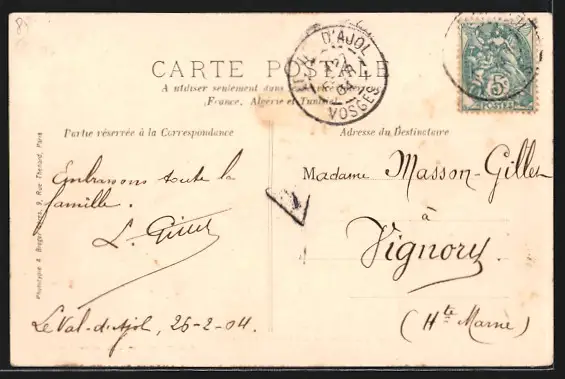 85
CARTE POSTALE
A utiliser seulement dans
France, Algérie et Tunisie
D'AJOL
04
VOSGES
5
POSTES
Partie réservée à la Correspondance
Adresse du Destinataire
Embrassons toute la
famille.
L. Gillet
Le Val-d'Ajol, 25-2-04.
Madame Masson-Gillet
à
Vignory
(Hte Marne)
Phototypie A. 9, Rue Thénard, Paris